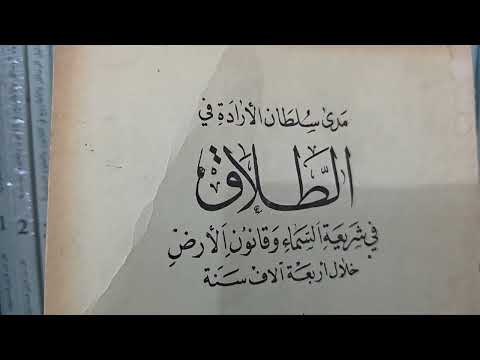 مَدى سُلطان الأرادَةِ في
الطَّلاق
في شَريعَةِ السَّماءِ وَقانُونِ الأرضِ
خلال أربَعَة آلاف سَنَة
1
2